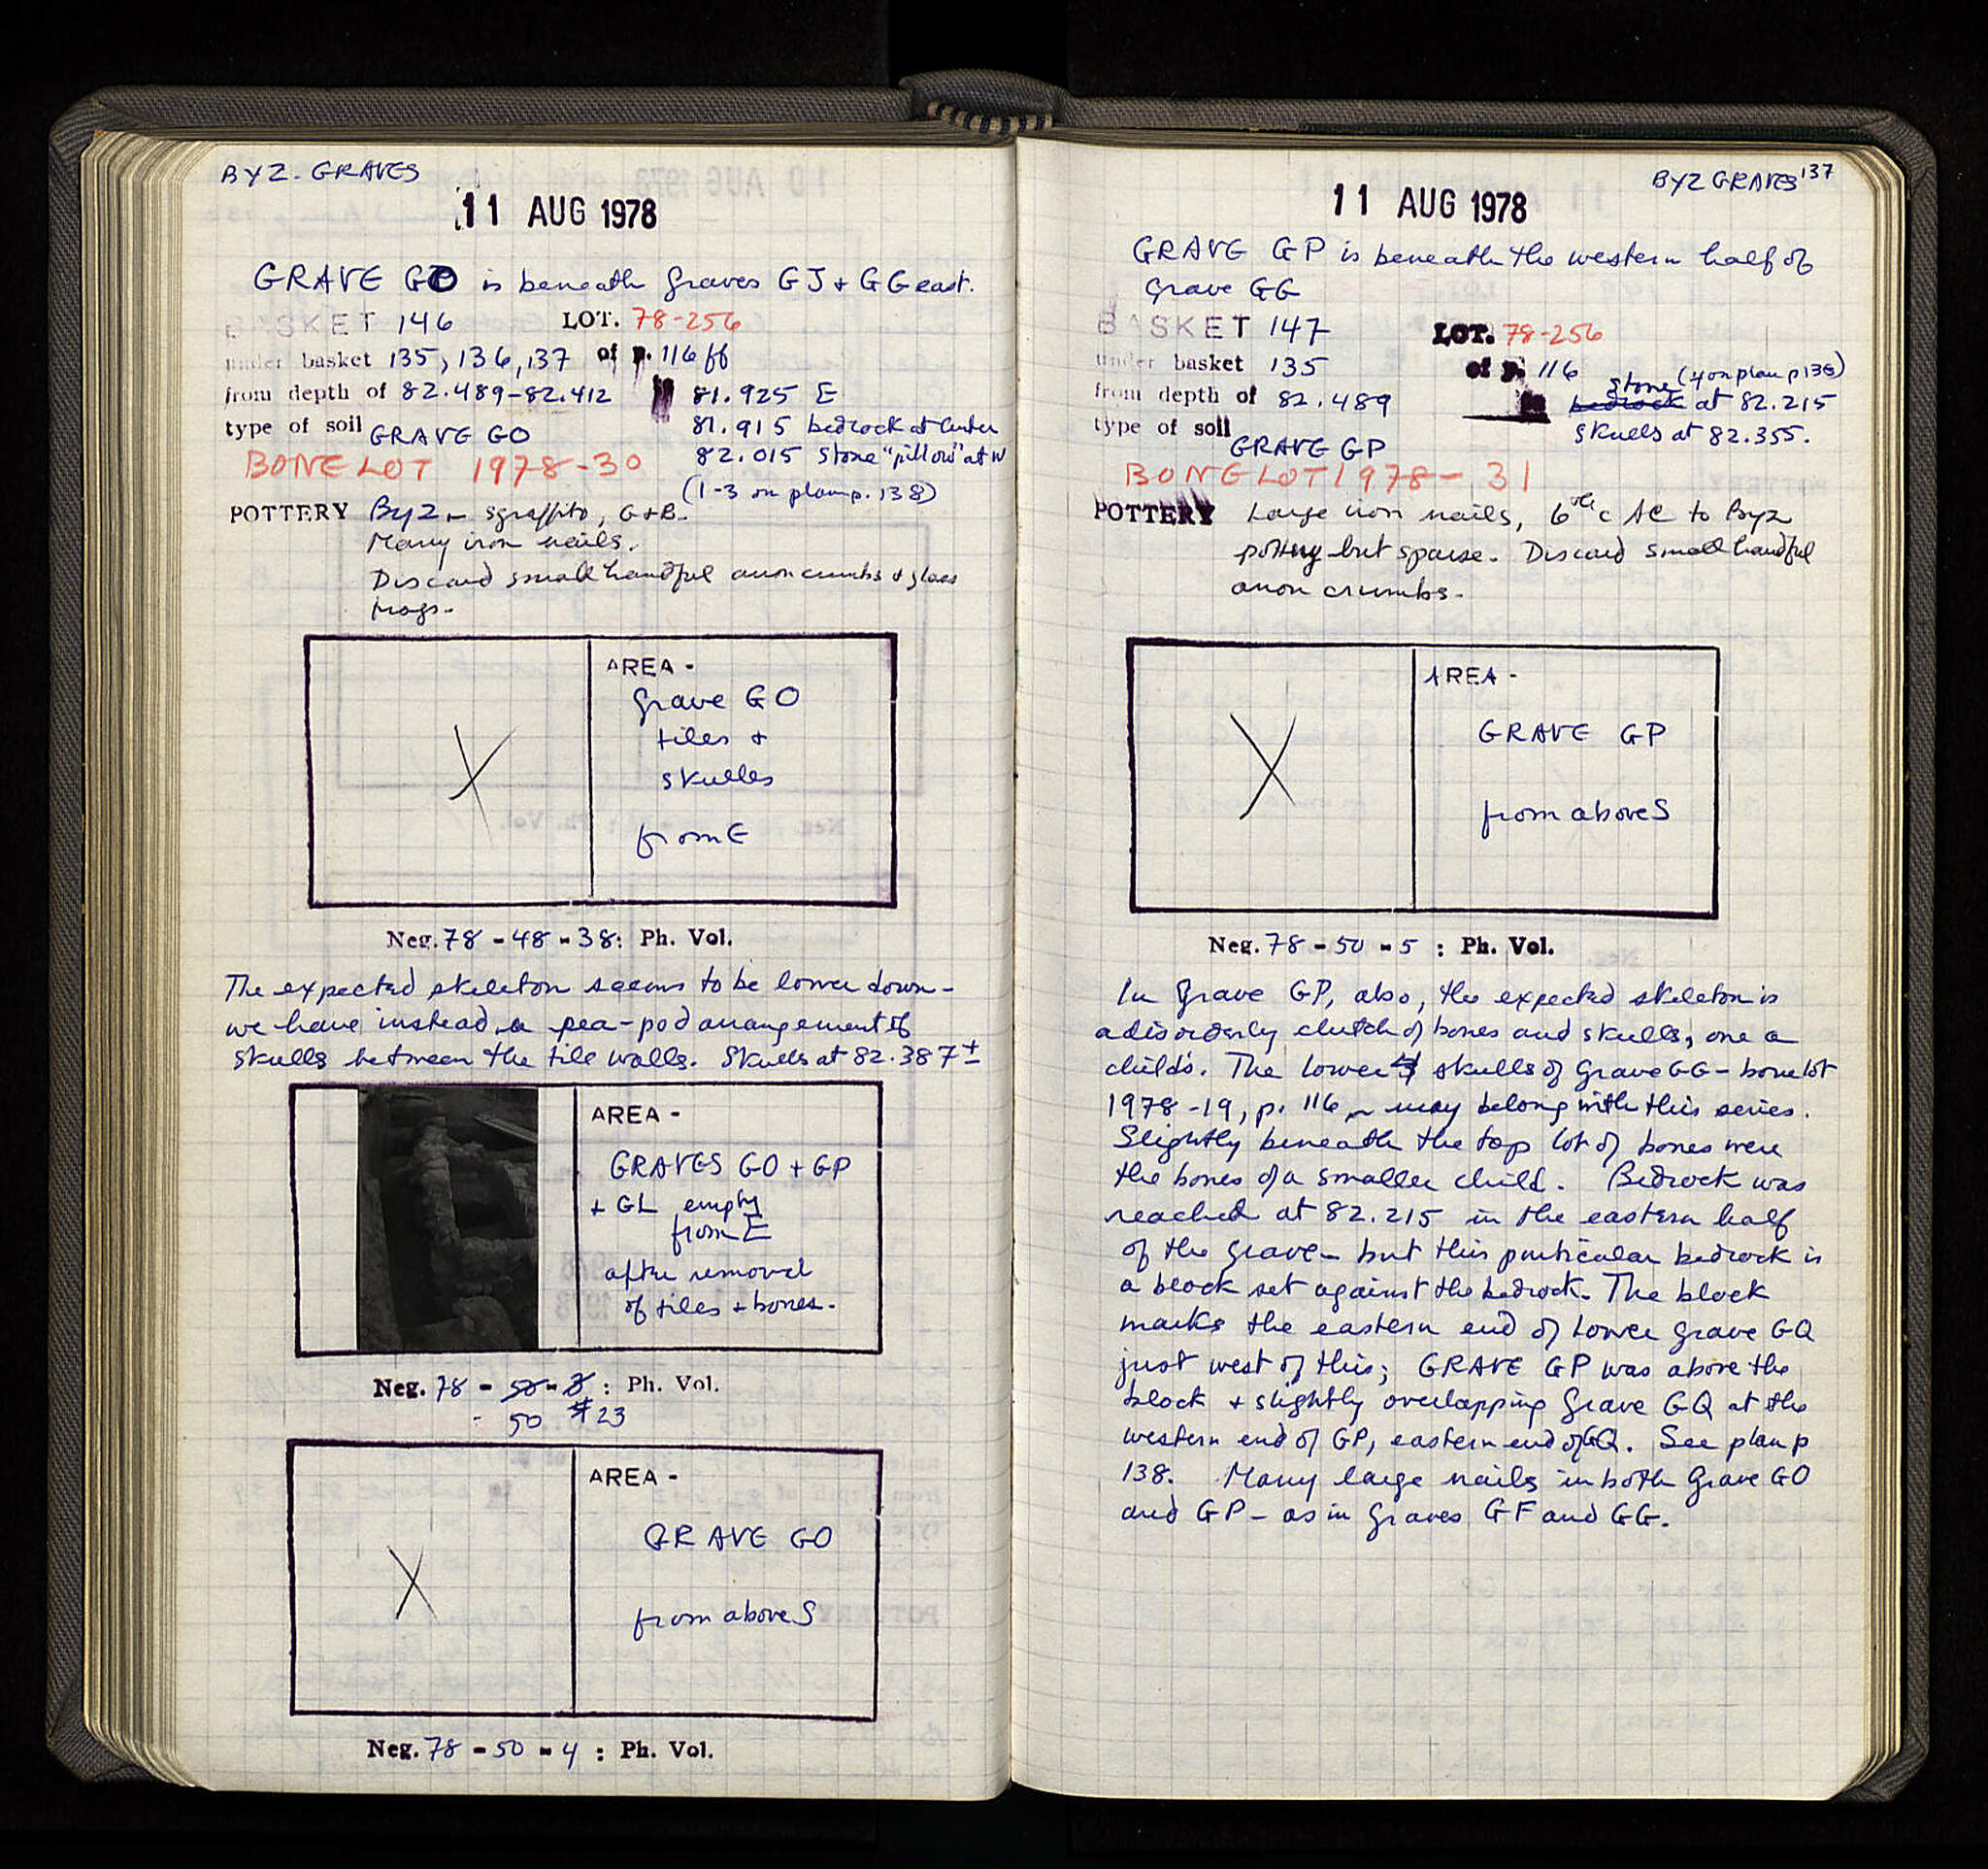 BYZ. GRAVES
11 AUG 1978
GRAVE GO is beneath graves GJ + GG east.
BASKET 146 LOT. 78-256
under basket 135, 136, 137 of p. 116 ff
from depth of 82.489-82.412 to 81.925 E
type of soil GRAVE GO 81.915 bedrock at center
82.015 stone "pillow" at W
BONE LOT 1978-30
(1-3 on plan p. 138)
POTTERY Byz - sgraffito, G+B.
Many iron nails.
Discard small handful anon crumbs + glass
frags.
AREA -
grave GO
tiles +
skulls
from E
Neg. 78 - 48 - 38: Ph. Vol.
The expected skeleton seems to be lower down -
we have instead a pea-pod arrangement of
skulls between the tile walls. Skulls at 82.387±
AREA -
GRAVES GO + GP
+ GL empty
from E
after removal
of tiles + bones.
Neg. 78 - 50 - 3 : Ph. Vol.
- 50 #23
AREA -
GRAVE GO
from above S
Neg. 78 - 50 - 4 : Ph. Vol.
BYZ GRAVES 137
11 AUG 1978
GRAVE GP is beneath the western half of
grave GG
BASKET 147 LOT. 78-256
under basket 135 of p. 116
stone (4 on plan p 138)
from depth of 82.489 to bedrock at 82.215
type of soil GRAVE GP skulls at 82.355.
BONE LOT 1978-31
POTTERY Large iron nails, 6th c AC to Byz
pottery but sparse. Discard small handful
anon crumbs.
AREA -
GRAVE GP
from above S
Neg. 78 - 50 - 5 : Ph. Vol.
In Grave GP, also, the expected skeleton is
a disorderly clutch of bones and skulls, one a
child's. The lower skulls of Grave GG - bone lot
1978-19, p. 116 - may belong with this series.
Slightly beneath the top lot of bones were
the bones of a smaller child. Bedrock was
reached at 82.215 in the eastern half
of the grave - but this particular bedrock is
a block set against the bedrock. The block
marks the eastern end of lower grave GQ
just west of this; GRAVE GP was above the
block + slightly overlapping Grave GQ at the
western end of GP, eastern end of GQ. See plan p
138. Many large nails in both Grave GO
and GP - as in Graves GF and GG.